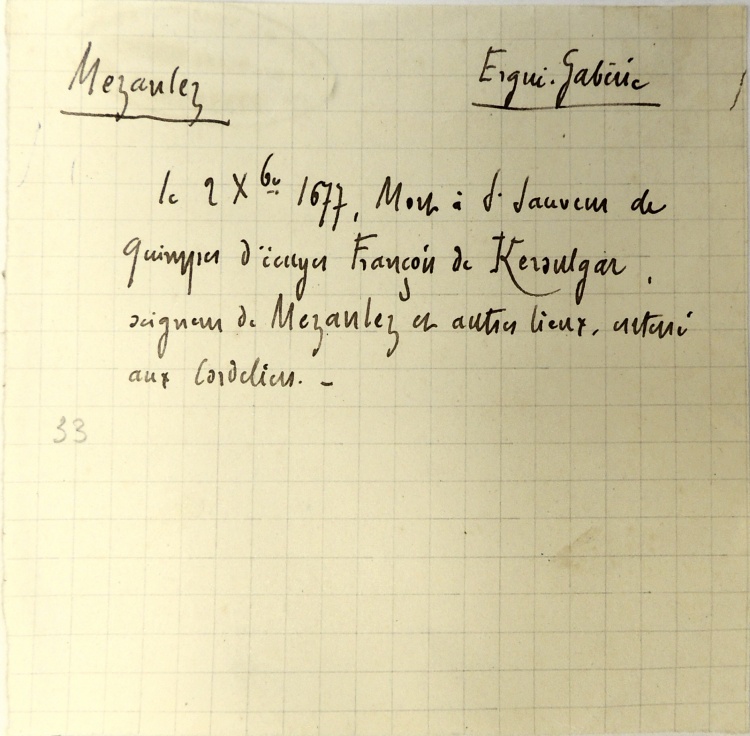 Mezanlez Ergué-Gabéric
le 2 Xbre 1677, Mort à St Sauveur de
Quimper d'écuyer François de Keraulgar,
seigneur de Mezanlez et autres lieux, enterré
aux Cordeliers. –
33